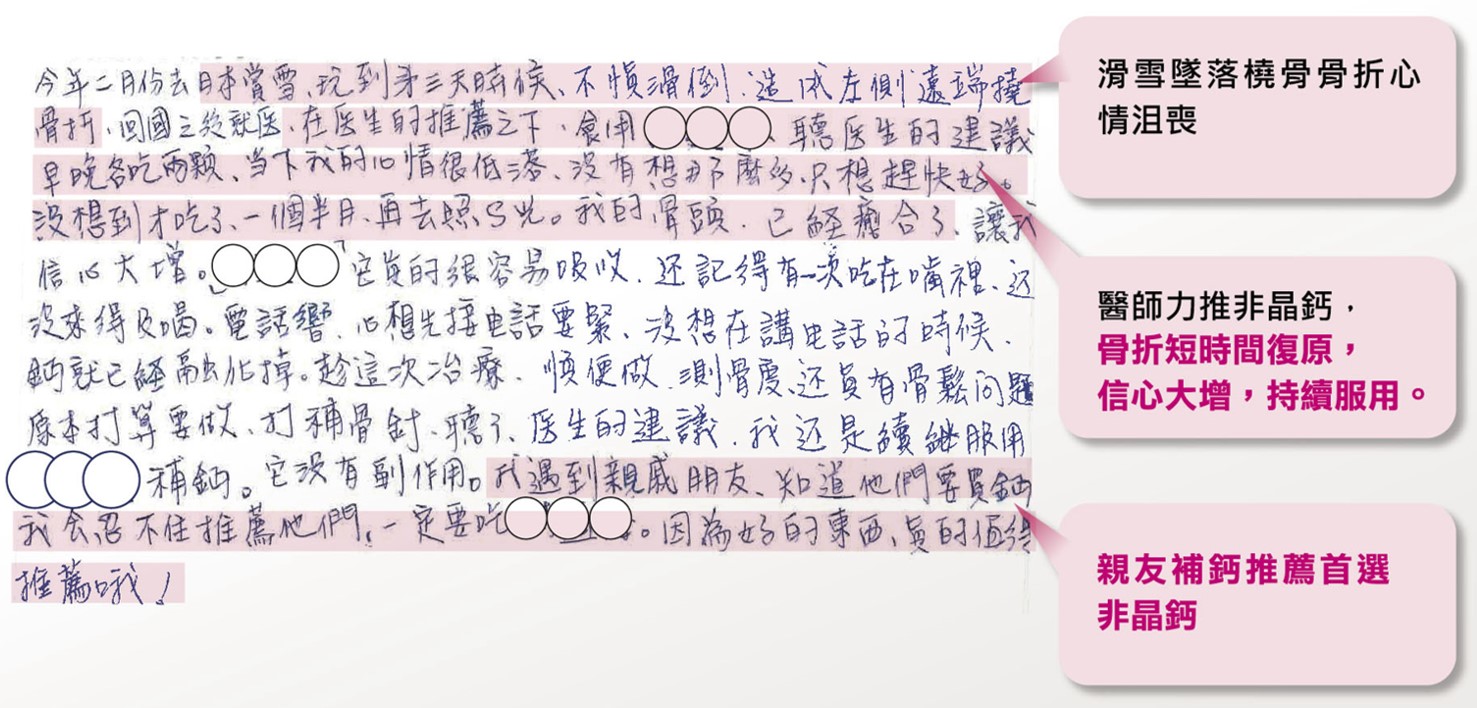 今年二月份去日本賞雪、玩到第三天時候、不慎滑倒、造成左側遠端撓
骨折、回國之後就医、在医生的推薦之下、食用○○○、聽医生的建議
早晚各吃兩顆、當下我的心情很低落、沒有想那麼多、只想趕快好。
沒想到才吃了、一個半月、再去照S光。我的骨頭、已経癒合了、讓我
信心大增。「○○○」它真的很容易吸收、还記得有一次吃在嘴裡、还
沒來得及喝。電話響、心想先接电話要緊、沒想在講电話的時候、
鈣就已経融化掉。趁這次治療、順便做、測骨度、还真有骨鬆问題
原本打算要做、打補骨針、聽了、医生的建議、我还是續継服用
○○○補鈣。它沒有副作用。我遇到親戚朋友、知道他們要買鈣
我会忍不住推薦他們、一定要吃○○○。因為好的東西、真的值得
推薦哦！
滑雪墜落橈骨骨折心
情沮喪
醫師力推非晶鈣，
骨折短時間復原，
信心大增，持續服用。
親友補鈣推薦首選
非晶鈣